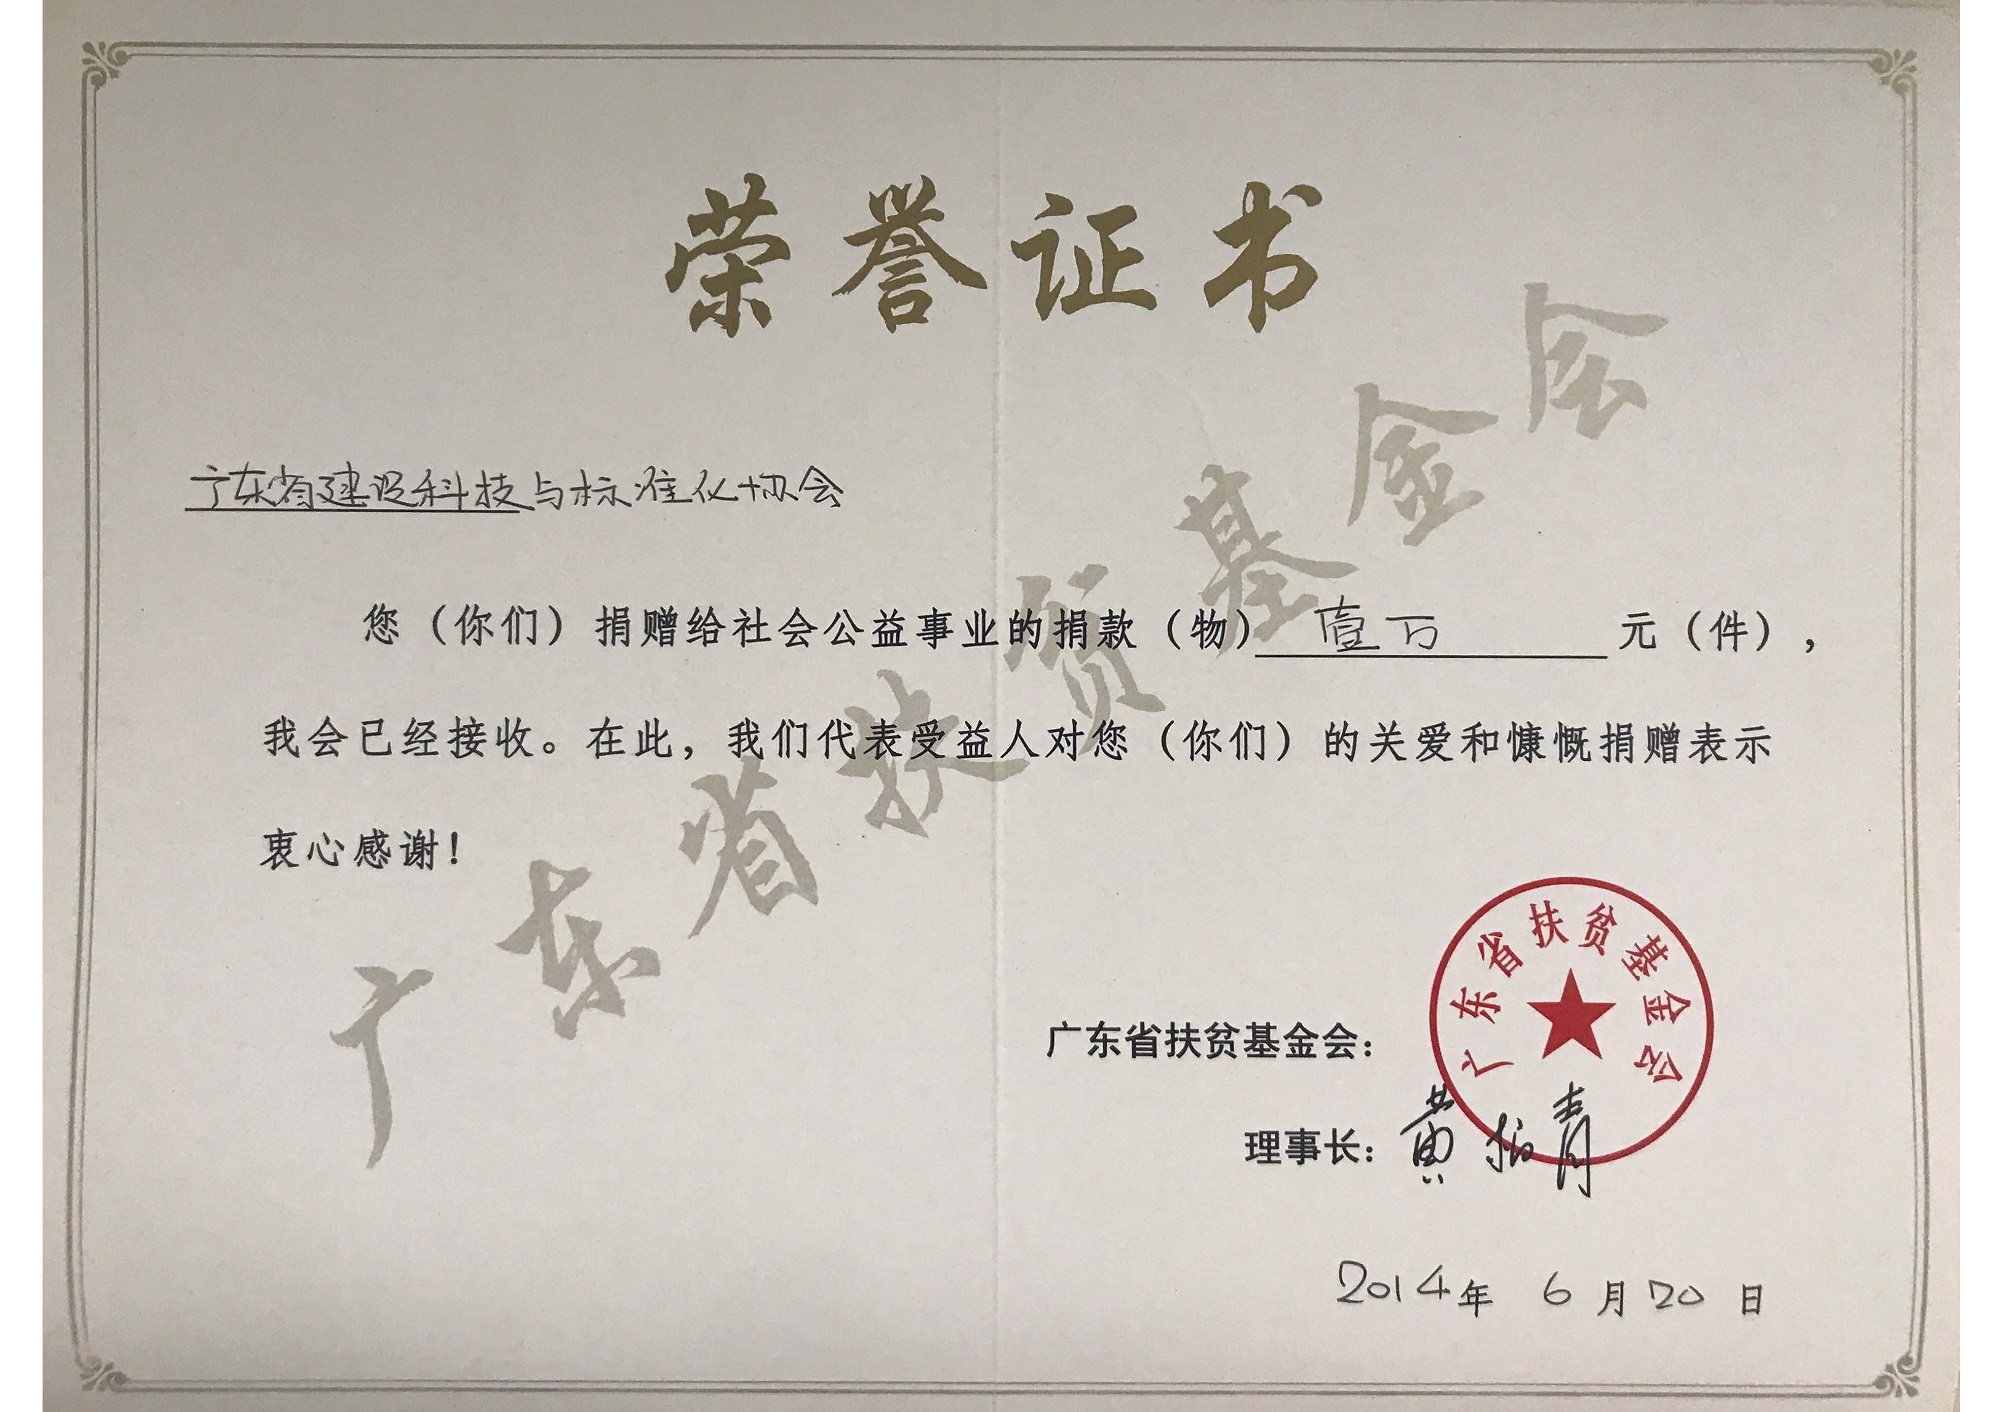 荣誉证书
广东省建设科技与标准化协会
您（你们）捐赠给社会公益事业的捐款（物）壹万元（件），
我会已经接收。在此，我们代表受益人对您（你们）的关爱和慷慨捐赠表示
衷心感谢！
广东省扶贫基金会
广东省扶贫基金会：
广东省扶贫基金会
理事长：黄柏青
2014年 6月20日